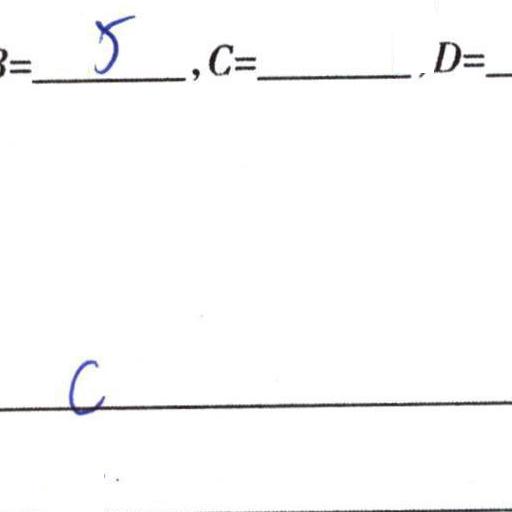 B= 5 , C= , D=
C